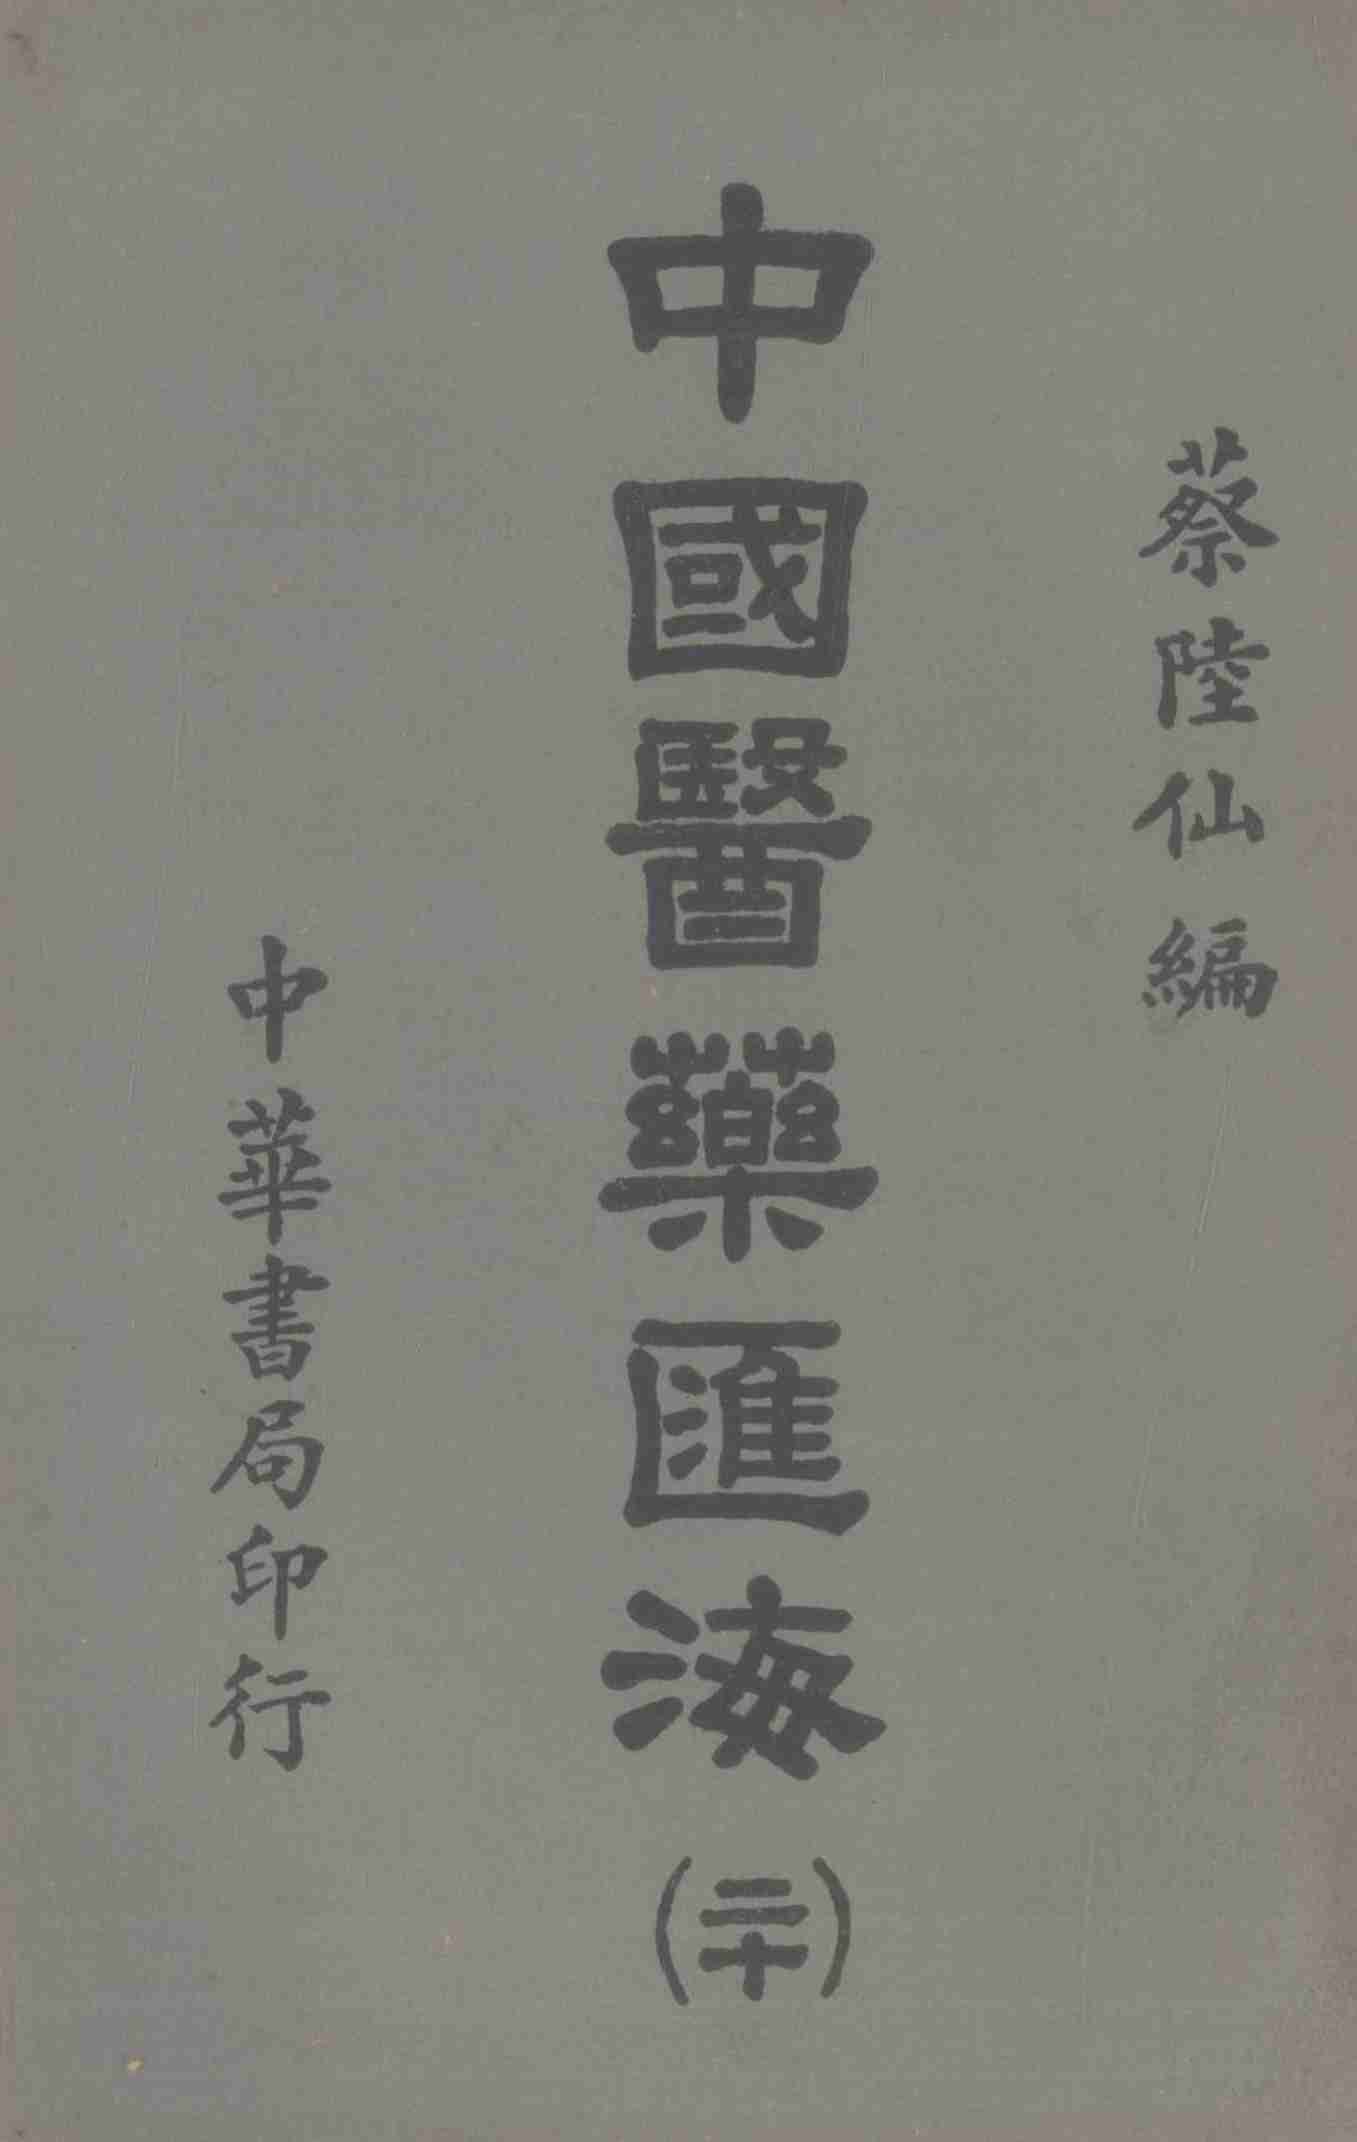 蔡陸仙編
中國醫藥匯海(二十)
中華書局印行